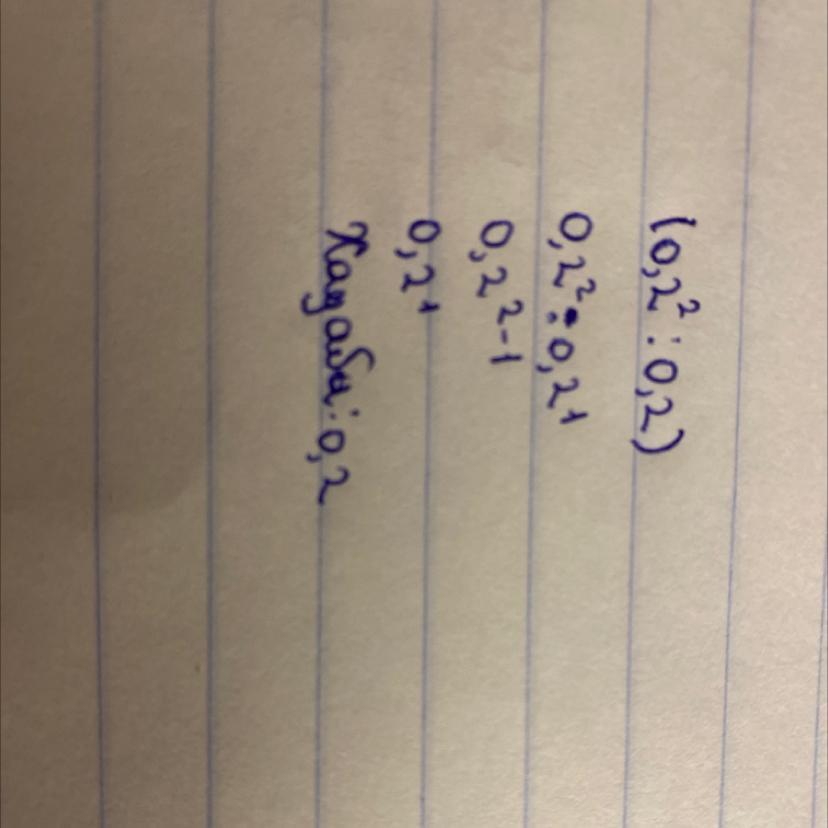 (0,2² : 0,2)
0,2² : 0,2¹
0,2²⁻¹
0,2¹
Жауабы: 0,2